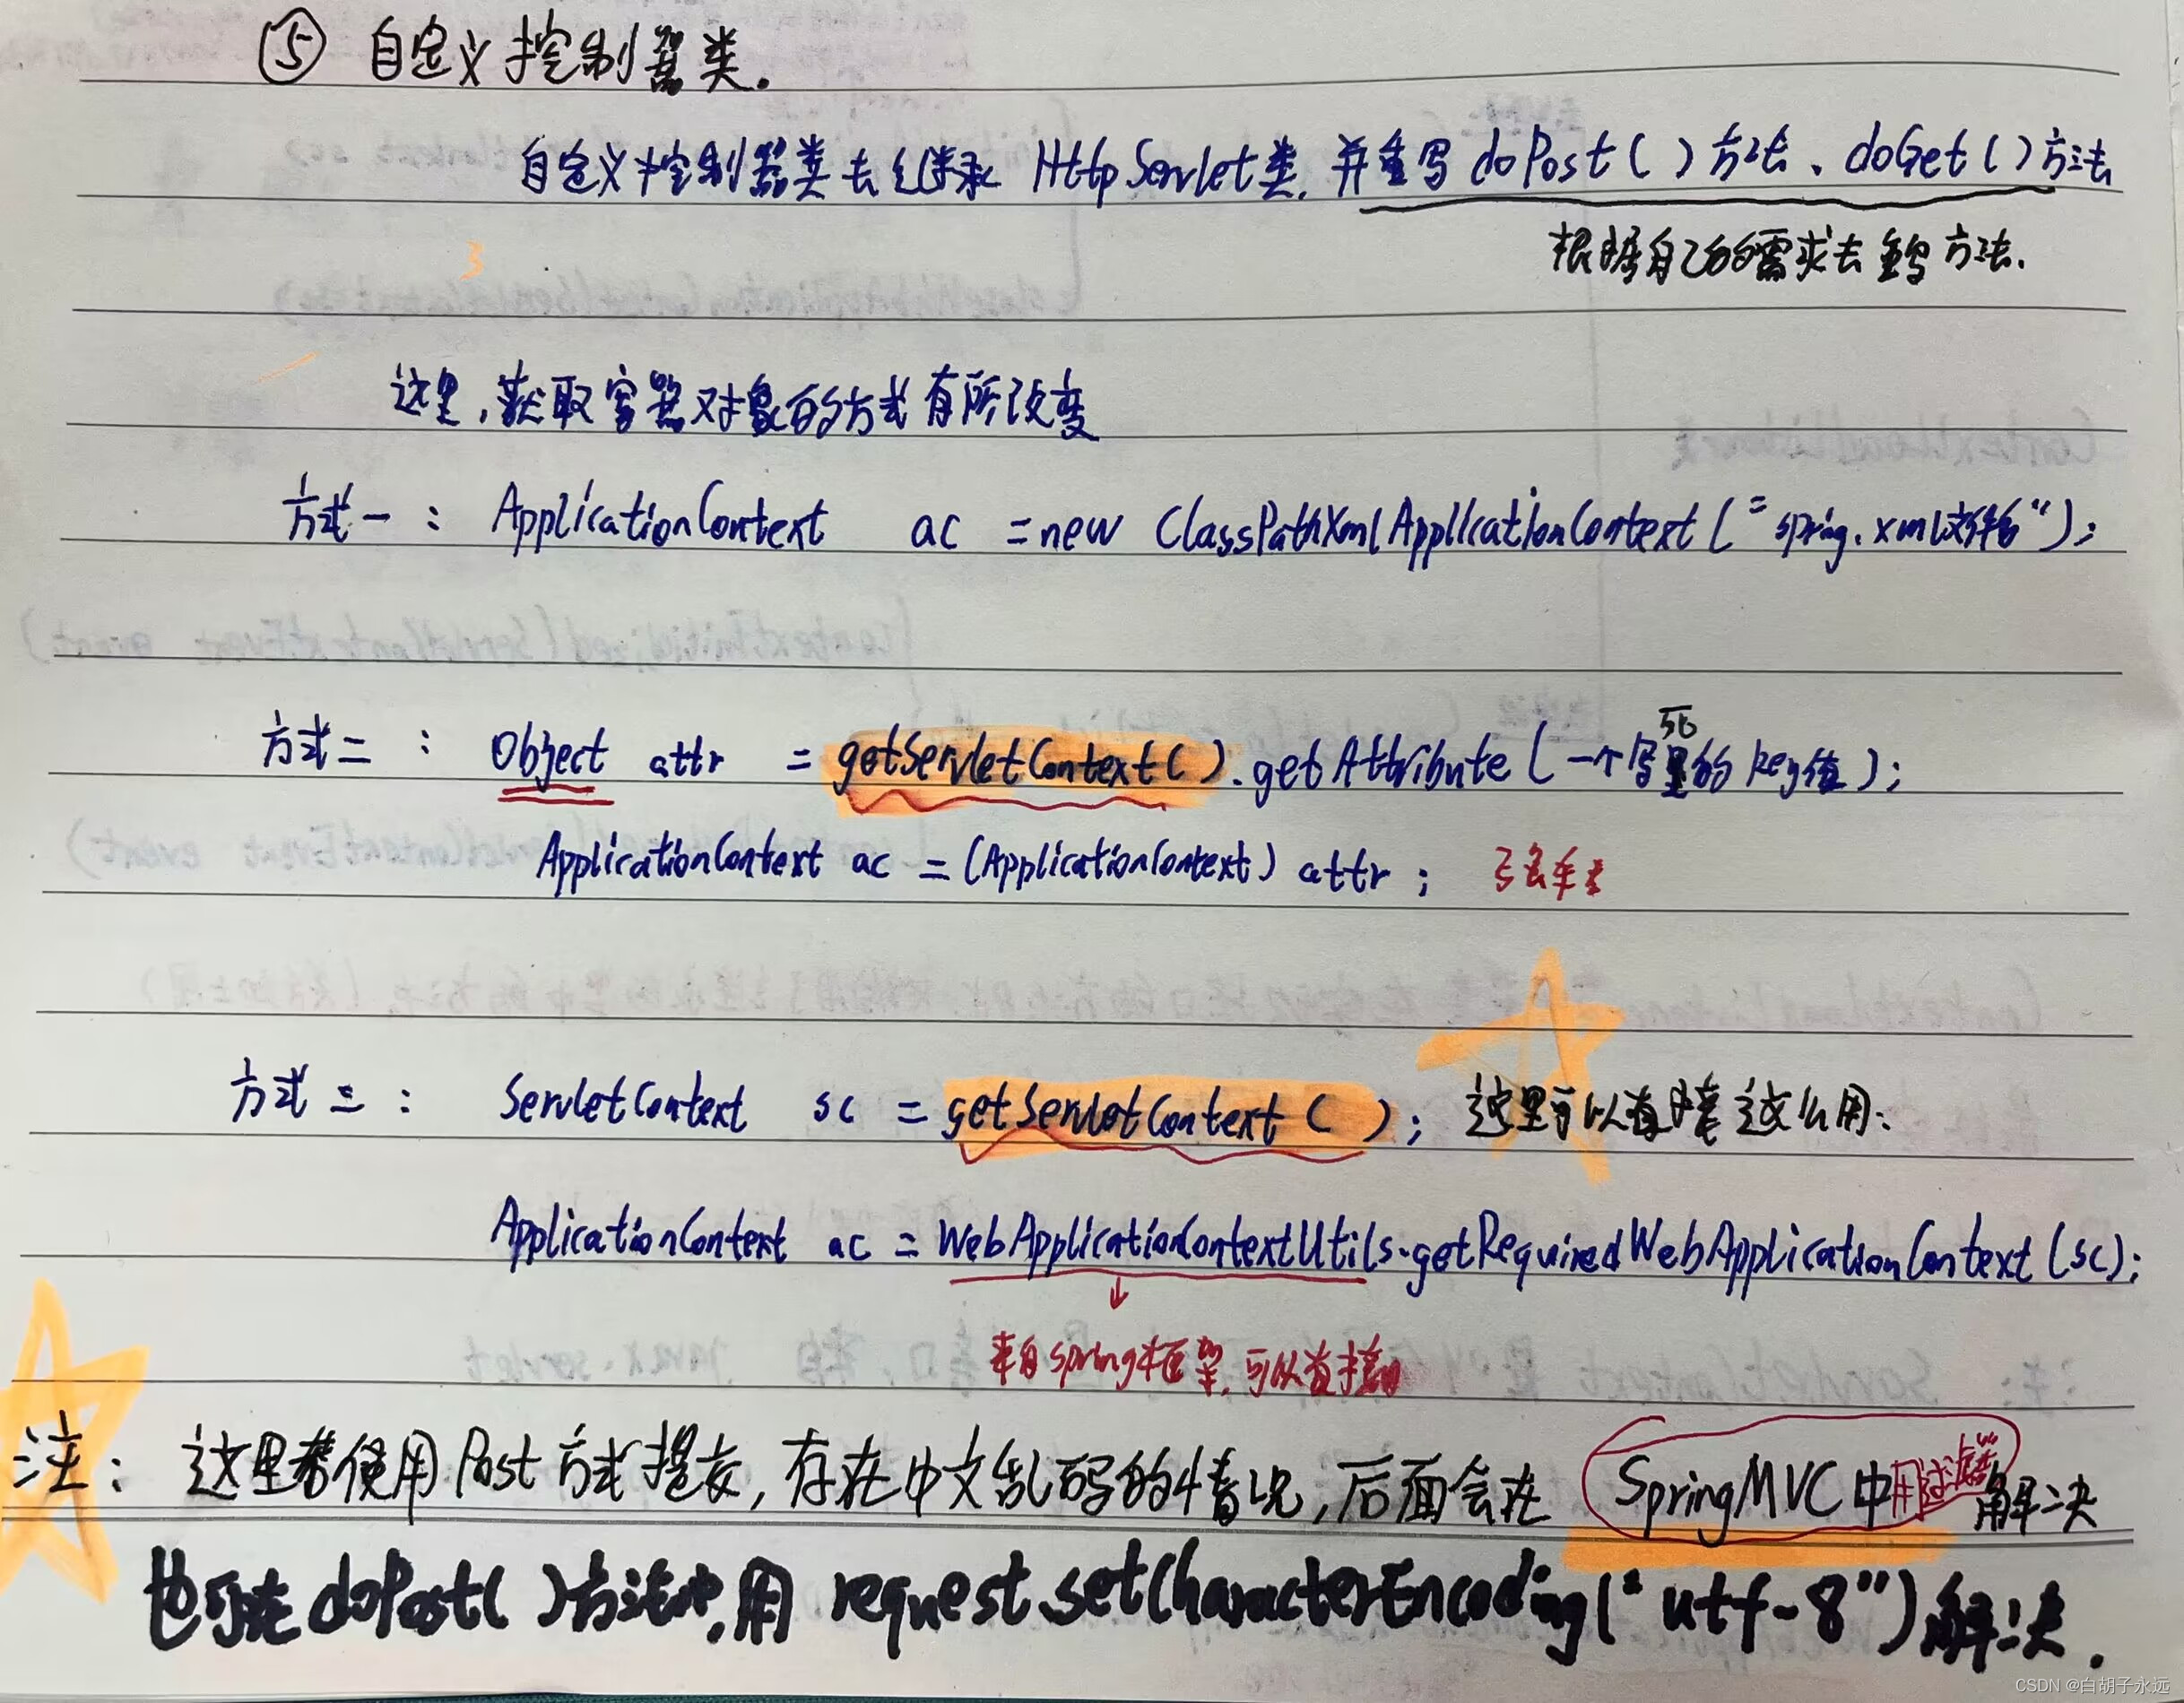 ⑤ 自定义控制器类.
自定义控制器类去继承 HttpServlet类, 并重写 doPost( ) 方法、doGet( ) 方法
根据自己的需求去重写方法.
这里,获取容器对象的方式有所改变
方式一: ApplicationContext ac = new ClassPathXmlApplicationContext("spring.xml文件名");
方式二: Object attr = getServletContext( ).getAttribute(一个写死的key值);
ApplicationContext ac = (ApplicationContext) attr;
方式三: ServletContext sc = getServletContext( ); 这里可以直接这么用:
ApplicationContext ac = WebApplicationContextUtils.getRequiredWebApplicationContext(sc);
↓
来自spring框架,可以直接用
注: 这里若使用Post方式提交,存在中文乱码的情况,后面会在 SpringMVC中用过滤器解决
也可在doPost( )方法中,用 request.setCharacterEncoding("utf-8")解决.
CSDN @白胡子永远